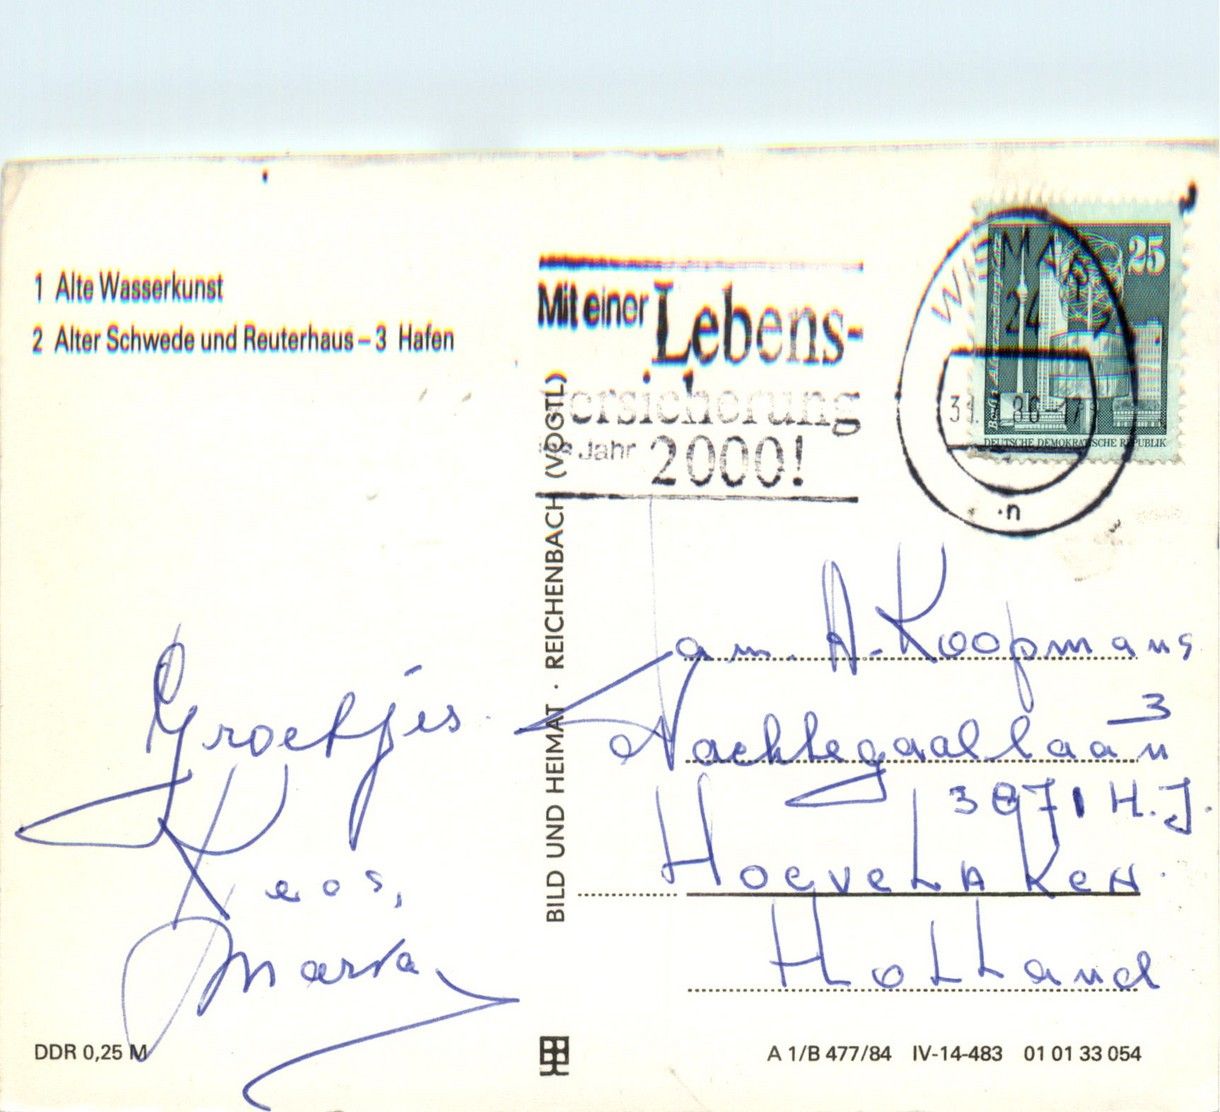 1 Alte Wasserkunst
2 Alter Schwede und Reuterhaus – 3 Hafen
Mit einer Lebens-
versicherung
ins Jahr 2000!
WISMAR
24
86-17
·n
25
Berlin
DEUTSCHE DEMOKRATISCHE REPUBLIK
BILD UND HEIMAT · REICHENBACH (VOGTL)
Groetjes
Kees,
Maria
am. A. Koopmans
Nachtegaallaan 3
3871 H.J.
Hoevelaken
Holland
DDR 0,25 M
A 1/B 477/84 IV-14-483 01 01 33 054